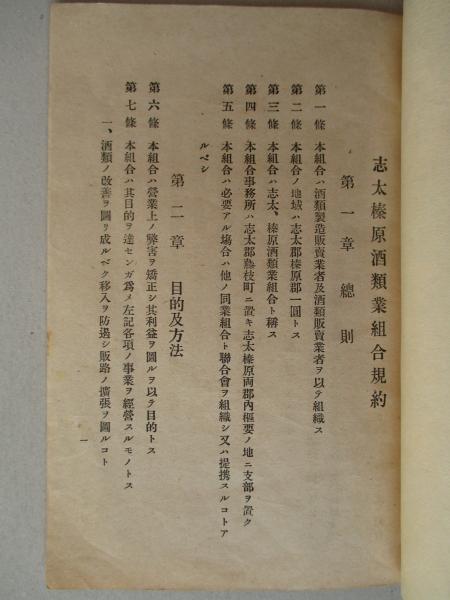 志太榛原酒類業組合規約
第一章 總則
第一條 本組合ハ酒類製造販賣業者及酒類販賣業者ヲ以テ組織ス
第二條 本組合ノ地域ハ志太郡榛原郡一圓トス
第三條 本組合ハ志太、榛原酒類業組合ト稱ス
第四條 本組合事務所ハ志太郡藤枝町ニ置キ志太榛原両郡內樞要ノ地ニ支部ヲ置ク
第五條 本組合ハ必要アル塲合ハ他ノ同業組合ト聯合會ヲ組織シ又ハ提携スルコトア
ルベシ
第二章 目的及方法
第六條 本組合ハ營業上ノ弊害ヲ矯正シ其利益ヲ圖ルヲ以テ目的トス
第七條 本組合ハ其目的ヲ達センガ爲メ左記各項ノ事業ヲ經營スルモノトス
一、酒類ノ改善ヲ圖リ成ルベク移入ヲ防遏シ販路ノ擴張ヲ圖ルコト
一